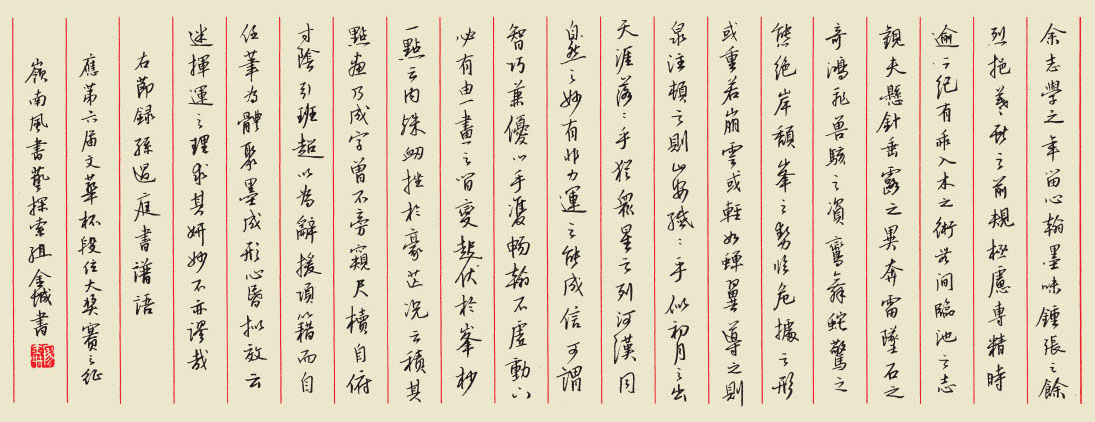 余志學之年留心翰墨味鍾張之餘
烈挹羲獻之前規極慮專精時
逾二紀有乖入木之術無間臨池之志
觀夫懸針垂露之異奔雷墜石之
奇鴻飛獸駭之資鸞舞蛇驚之
態絕岸頹峯之勢臨危據之形
或重若崩雲或輕如蟬翼導之則
泉注頓之則山安纖〻乎似初月之出
天涯落〻乎猶眾星之列河漢同
自然之妙有非力運之能成信可謂
智巧兼優心手雙暢翰不虛動下
必有由一畫之間變起伏於峯杪
一點之內殊衄挫於豪芒況云積其
點畫乃成字曾不旁窺尺櫝自俯
寸陰引班超以為辭援項籍而自
任筆為體聚墨成形心昏擬效云
迷揮運之理求其妍妙不亦謬哉
右節錄孫過庭書譜語
應第六届文華杯段位大奖賽之征
嶺南風書藝探索組金城書